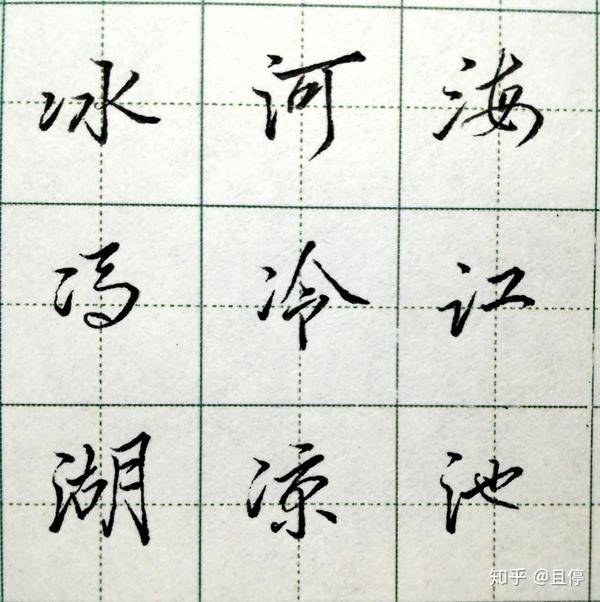 冰河海
冯冷江
湖凉池
知乎 @且停